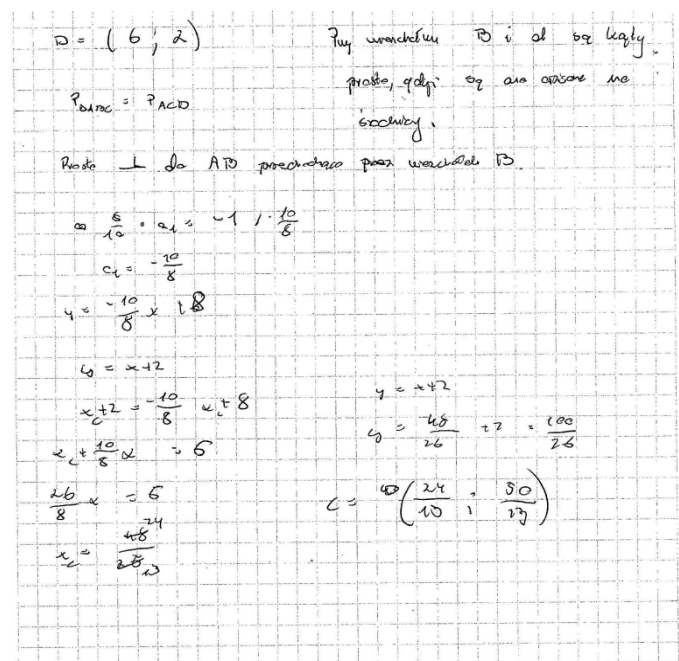 D = ( 6 ; 2 )
Przy wierzchołku B i d są kąty
proste, gdyż są one opisane na
średnicy.
P_{DABC} = P_{ACD}
Prosta ⊥ do AB przechodząca przez wierzchołek B.
a_1 = -1 / · \frac{10}{8}
a_1 = \frac{-10}{8}
y = \frac{-10}{8} x + 8
y = x+2
x_c+2 = \frac{-10}{8} x_c + 8
x_c + \frac{10}{8} x = 6
\frac{26}{8} x = 6
x_c = \frac{48}{26} 24 13
y = x+2
y = \frac{48}{26} +2 = \frac{100}{26}
C = ( \frac{24}{13} ; \frac{50}{13} )